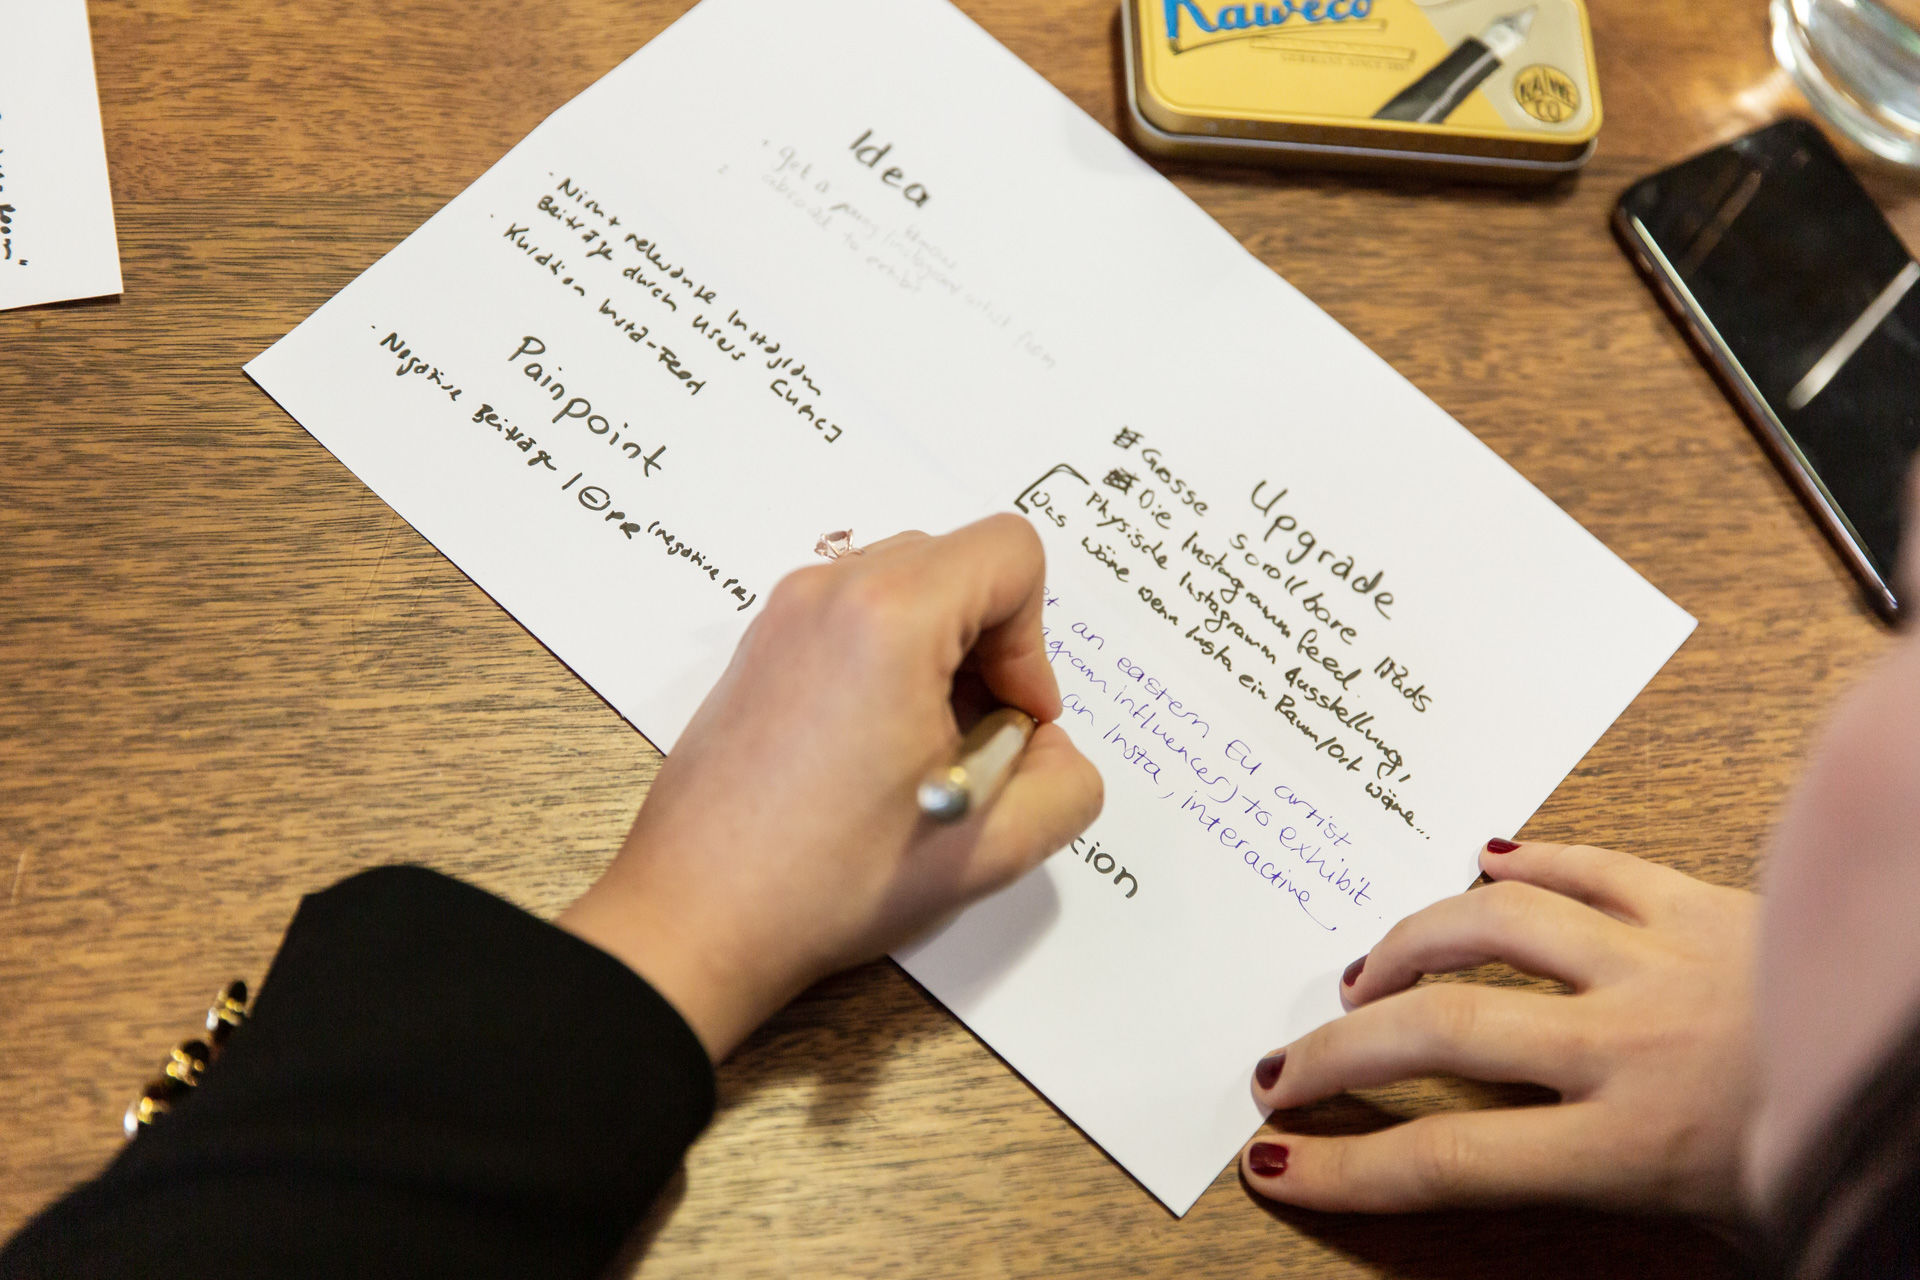 Kaweco
KAWE
CO
Idea
get a young famous
Instagram artist from
abroad to exhibit
· Nicht relevante Instagram
Beiträge durch Users [UMC]
· Kuration Insta-Feed
Painpoint
· Negative Beiträge / ⊖PR (negative PR)
Upgrade
Grosse scrollbare IPads
Die Instagramm feed.
Physische Instagramm Ausstellung,
Was wäre wenn Insta ein Raum/Ort wäre...
an eastern EU artist
influencer) to exhibit.
an Insta, interactive,
ction